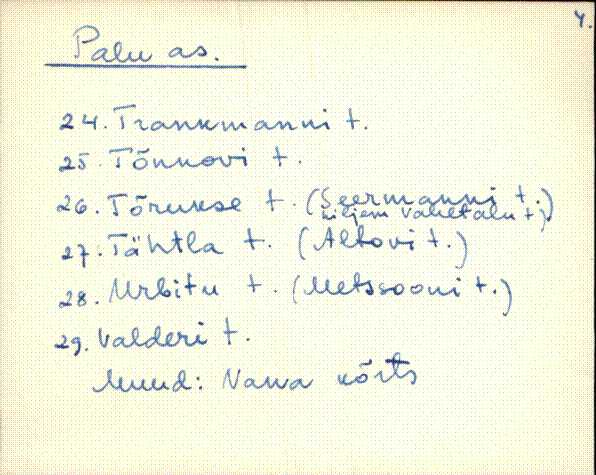 4.
Palu as.
24. Trankmanni t.
25. Tõnnovi t.
26. Tõrukse t. (Seermanni t.)
hiljem Vahetalu t)
27. Tähtla t. (Altovi t.)
28. Urbitu t. (Metssooni t.)
29. Valderi t.
Muud: Nawa kõrts